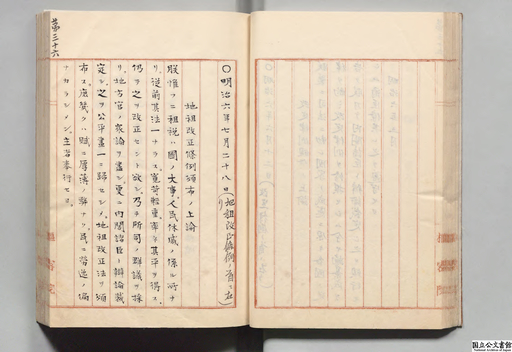 第三十六
〇明治六年七月二十八日(地租改正條例ノ首ニ在リ)
地租改正條例頒布ノ上諭
朕惟フニ租税ハ國ノ大事人民休戚ノ係ル所ナ
リ從前其法一ナラス寛苛輕重率子其平ヲ得ス
仍テ之ヲ改正セント欲シ乃チ所司ノ群議ヲ採
リ地方官ノ衆論ヲ盡シ更ニ内閣諸臣ト辯論裁
定シ之ヲ公平畫一ニ歸セシメ地租改正法ヲ頒
布ス庶幾クハ賦ニ厚薄ノ弊ナク民ニ勞逸ノ偏
ナカラシメン主者奉行セヨ
国立公文書館
National Archives of Japan